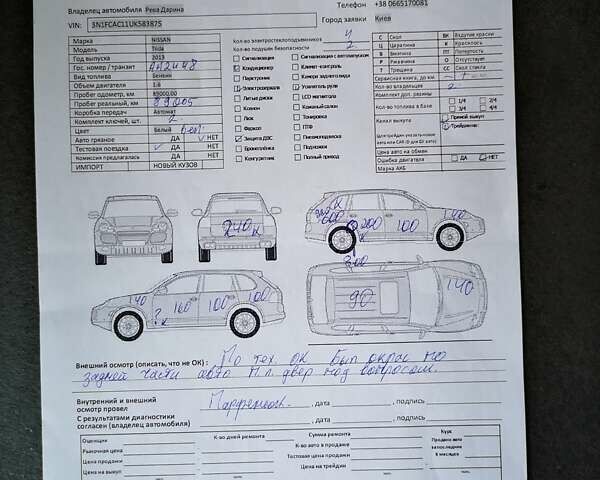 Владелец автомобиля Рева Дарина Телефон +38 0665170081
VIN: 3N1FCAC11UK583875 Город заявки Киев
Марка NISSAN
Модель Tiida
Год выпуска 2013
Гос. номер / транзит
Вид топлива Бензин
Объем двигателя 1.6
Пробег одометр, км 89000.00
Пробег реальный, км 89005
Коробка передач Автомат
Комплект ключей, шт. 2
Цвет Белый
Авто грязное ДА НЕТ
Тестовая поездка ДА НЕТ
Комиссия предлагалась ДА НЕТ
ИМПОРТ НОВЫЙ КУЗОВ
Кол-во электростеклоподъемников 4
Кол-во подушек безопасности 2
Сигнализация
Кондиционер
Парктроник
Электрозеркала
Литые диски
Ксенон
Люк
Фаркоп
Защита ДВС
Бронеплёнка
Кенгурятник
Сигнализация с автозапуском
Климат-контроль
Камера заднего вида
Усилитель руля
LCD монитор
Кожаный салон
Тонировка
ПТФ
Пневмоподвеска
Подножки
Полный привод
С Скол ВК Вздутие краски
Ц Царапина К Крашелось
В Вмятина П Притёртость
Р Ржавчина О Отсутствует
Т Трещина СС Скол стекла
Сервисная книга, до км.
Кол-во владельцев 2
Комплект доп. резины
Кол-во топлива в баке 1/4 2/4
3/4 4/4
Канал выкупа Прямой выкуп
Трейдинг:
Цена авто на обмен
Ошибка двигателя ДА НЕТ
Марка АКБ
240 к
200 100 140
300
140 160 100 100
? к
90 140
Внешний осмотр (описать, что не ОК) : По тех. ок Был окрас по
задней части авто П л. двер под вопросом.
Внутренний и внешний
осмотр провел , дата , подпись
С результатами диагностики
согласен (владелец автомобиля) , дата , подпись
Оценщик К-во дней ремонта Сумма ремонта Курс
Рыночная цена К-во авто в продаже Продано авто
за последние
6 месяцев
Цена продажи Тестовая цена продажи
Цена на выкуп Цена на трейдин